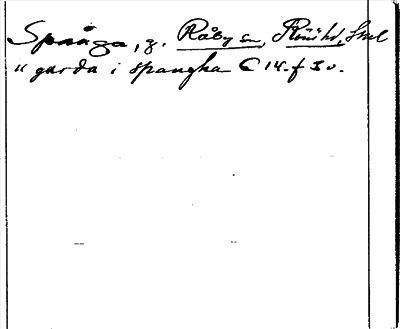 Spånga, g. Råby sn, Rönö hd, Sml
" garda i spangha C 14 f 3 v.